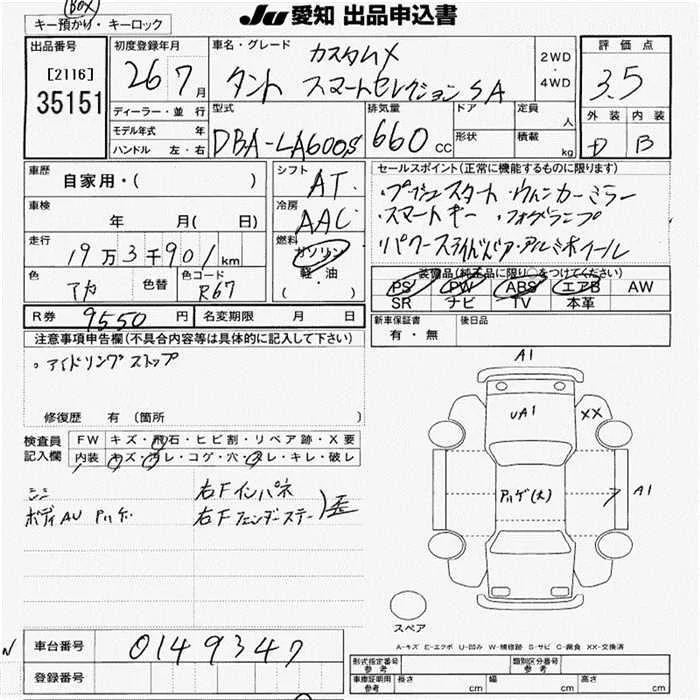 (BOX)
キー預かり・キーロック
JU 愛知 出品申込書
出品番号
[2116]
35151
初度登録年月
26 7月
ディーラー・並行
モデル年式 年
ハンドル 左・右
車名・グレード
カスタムX
タント スマートセレクションSA
2WD
・
4WD
型式
DBA-LA600S
排気量
660 CC
ドア
形状
定員 人
積載 kg
評価点
3.5
外装 内装
D B
車歴
自家用・( )
車検
年 月( 日)
走行
19万3千901km
色
アカ
色替
色コード
R67
シフト
AT
冷房
AAC
燃料
ガソリン
軽・油
( )
セールスポイント(正常に機能するものに限ります)
・プッシュスタート ・ウィンカーミラー
・スマートキー ・フォグランプ
・パワースライドドア・アルミホイール
装備品(純正品に限り○をつけてください)
PS PW ABS エアB AW
SR ナビ TV 本革
R券 9550円
名変期限 月 日
新車保証書
有・無
後日品
注意事項申告欄(不具合内容等は具体的に記入して下さい)
・アイドリングストップ
修復歴 有 (箇所 )
検査員
記入欄
FW キズ・飛石・ヒビ割・リペア跡・X要
内装 キズ・ヨゴレ・コゲ・穴・スレ・キレ・破レ
ボディAU アリゲ
右Fインパネ
右Fフェンダーステー
歪
A1
UA1
XX
アリゲ(大)
A1
スペア
A-キズ E-エクボ U-凹み W-補修跡 S-サビ C-腐食 XX-交換済
車台番号
0149347
登録番号
型式指定番号
参考
類別区分番号
参考
車庫証明用
参考
長さ cm
幅 cm
高さ cm